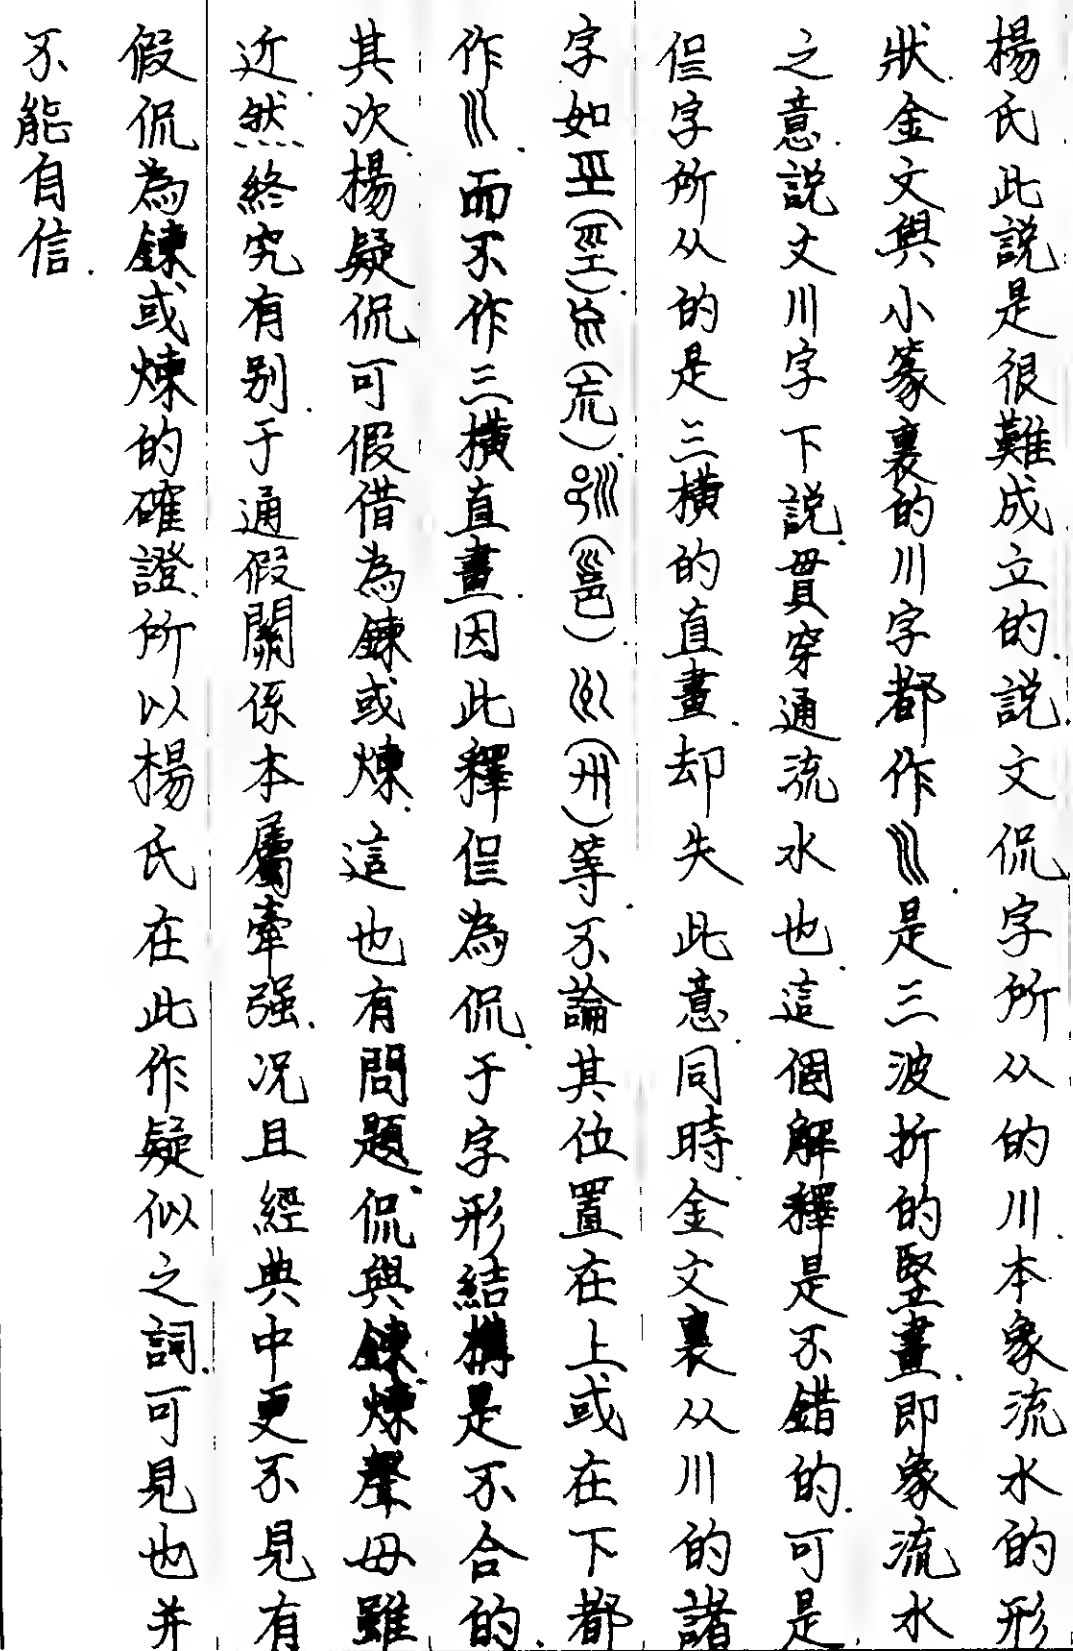 楊氏此説是很難成立的.説文侃字所从的川.本象流水的形
狀.金文與小篆裏的川字都作巛.是三波折的竪畫.即象流水
之意.説文川字下説.貫穿通流水也.這個解釋是不錯的.可是
㑁字所从的是三橫的直畫.却失此意.同時.金文裏从川的諸
字.如坙(巠).㐬(㐬).邕(邕).州(州)等.不論其位置在上或在下.都
作巛.而不作三橫直畫.因此釋㑁為侃.于字形結構是不合的.
其次.楊疑侃可假借為鍊或煉.這也有問題.侃與鍊.煉聲母雖
近.然終究有别.于通假關係本屬牽强.況且經典中更不見有
假侃為鍊或煉的確證.所以楊氏在此作疑似之詞.可見也并
不能自信.